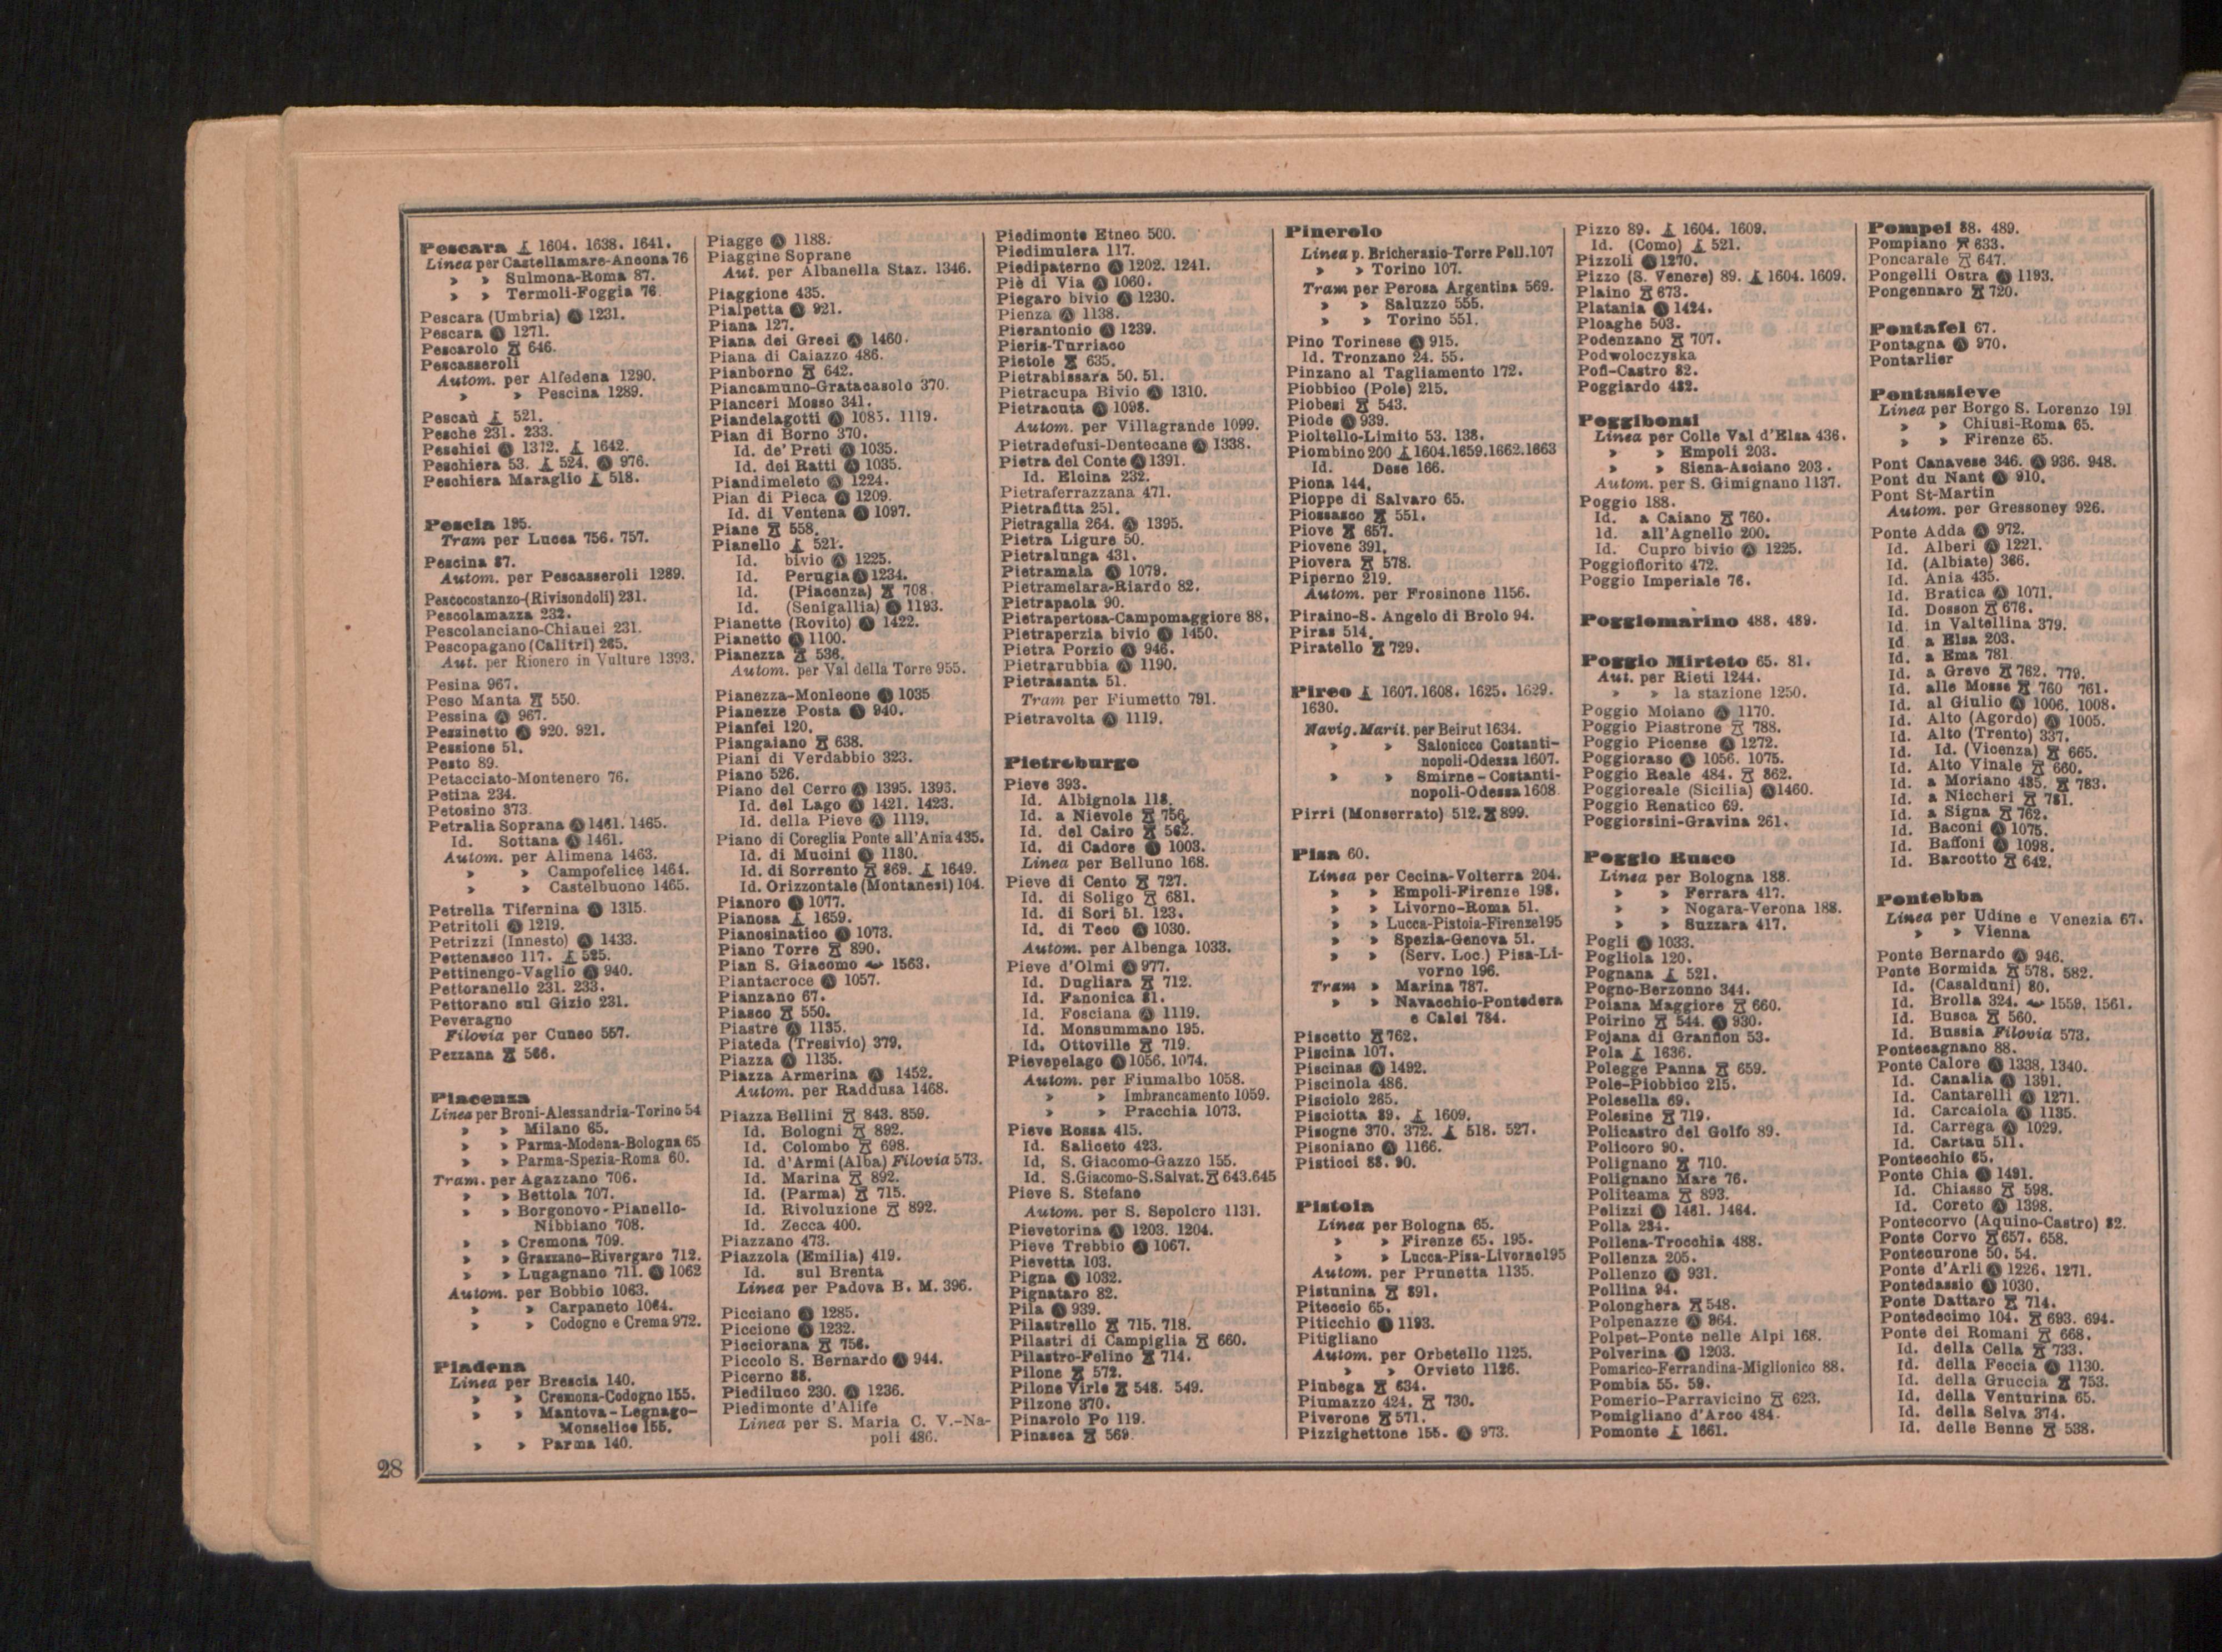 Pescara 1604. 1638. 1641.
Linea per Castellamare-Ancona 76
» » Sulmona-Roma 87.
» » Termoli-Foggia 76.
Pescara (Umbria) Ⓐ 1231.
Pescara Ⓐ 1271.
Pescarolo 646.
Pescasseroli
Autom. per Alfedena 1290.
» » Pescina 1289.
Pescaù 521.
Pesche 231. 233.
Peschici Ⓐ 1372. 1642.
Peschiera 53. 524. Ⓐ 976.
Peschiera Maraglio 518.
Pescia 195.
Tram per Lucca 756. 757.
Pescina 87.
Autom. per Pescasseroli 1289.
Pescocostanzo-(Rivisondoli) 231.
Pescolamazza 232.
Pescolanciano-Chiauci 231.
Pescopagano (Calitri) 265.
Aut. per Rionero in Vulture 1393.
Pesina 967.
Peso Manta 550.
Pessina Ⓐ 967.
Pessinetto Ⓐ 920. 921.
Pessione 51.
Pesto 89.
Petacciato-Montenero 76.
Petina 234.
Petosino 373
Petralia Soprana Ⓐ 1461. 1465.
Id. Sottana Ⓐ 1461.
Autom. per Alimena 1463.
» » Campofelice 1464.
» » Castelbuono 1465.
Petrella Tifernina Ⓐ 1315.
Petritoli Ⓐ 1219.
Petrizzi (Innesto) Ⓐ 1433.
Pettenasco 117. 525.
Pettinengo-Vaglio Ⓐ 940.
Pettoranello 231. 233.
Pettorano sul Gizio 231.
Peveragno
Filovia per Cuneo 557.
Pezzana 566.
Piacenza
Linea per Broni-Alessandria-Torino 54
» » Milano 65.
» » Parma-Modena-Bologna 65
» » Parma-Spezia-Roma 60.
Tram. per Agazzano 706.
» » Bettola 707.
» » Borgonovo-Pianello-
Nibbiano 708.
» » Cremona 709.
» » Grazzano-Rivergaro 712.
» » Lugagnano 711. Ⓐ 1062
Autom. per Bobbio 1063.
» » Carpaneto 1064.
» » Codogno e Crema 972.
Piadena
Linea per Brescia 140.
» » Cremona-Codogno 155.
» » Mantova-Legnago-
Monselice 155.
» » Parma 140.
28
Piagge Ⓐ 1188.
Piaggine Soprane
Aut. per Albanella Staz. 1346.
Piaggione 435.
Pialpetta Ⓐ 921.
Piana 127.
Piana dei Greci Ⓐ 1460.
Piana di Caiazzo 486.
Pianborno 642.
Piancamuno-Gratacasolo 370.
Pianceri Mosso 341.
Piandelagotti Ⓐ 1085. 1119.
Pian di Borno 370.
Id. de' Preti Ⓐ 1035.
Id. dei Ratti Ⓐ 1035.
Piandimeleto Ⓐ 1224.
Pian di Pieca Ⓐ 1209.
Id. di Ventena Ⓐ 1097.
Piane 558.
Pianello 521.
Id. bivio Ⓐ 1225.
Id. Perugia Ⓐ 1234.
Id. (Piacenza) 708
Id. (Senigallia) Ⓐ 1193.
Pianette (Rovito) Ⓐ 1422.
Pianetto Ⓐ 1100.
Pianezza 536.
Autom. per Val della Torre 955.
Pianezza-Monleone Ⓐ 1035
Pianezze Posta Ⓐ 940.
Pianfei 120.
Piangaiano 638.
Piani di Verdabbio 323.
Piano 526.
Piano del Cerro Ⓐ 1395. 1396.
Id. del Lago Ⓐ 1421. 1423.
Id. della Pieve Ⓐ 1119.
Piano di Coreglia Ponte all'Ania 435.
Id. di Mucini Ⓐ 1130.
Id. di Sorrento 869. 1649.
Id. Orizzontale (Montanesi) 104.
Pianoro Ⓐ 1077.
Pianosa 1659.
Pianosinatico Ⓐ 1073.
Piano Torre 890.
Pian S. Giacomo 1563.
Piantacroce Ⓐ 1057.
Pianzano 67.
Piasco 550.
Piastre Ⓐ 1135.
Piateda (Tresivio) 379.
Piazza Ⓐ 1135.
Piazza Armerina Ⓐ 1452.
Autom. per Raddusa 1468.
Piazza Bellini 843. 859.
Id. Bologni 892.
Id. Colombo 698.
Id. d'Armi (Alba) Filovia 573.
Id. Marina 892.
Id. (Parma) 715.
Id. Rivoluzione 892.
Id. Zecca 400.
Piazzano 473.
Piazzola (Emilia) 419.
Id. sul Brenta
Linea per Padova B. M. 396.
Picciano Ⓐ 1285.
Piccione Ⓐ 1232.
Picciorana 756.
Piccolo S. Bernardo Ⓐ 944.
Picerno 88.
Piediluco 230. Ⓐ 1236.
Piedimonte d'Alife
Linea per S. Maria C. V.-Na-
poli 486.
Piedimonte Etneo 500.
Piedimulera 117.
Piedipaterno Ⓐ 1202. 1241.
Piè di Via Ⓐ 1060.
Piegaro bivio Ⓐ 1230.
Pienza Ⓐ 1138.
Pierantonio Ⓐ 1239.
Pieris-Turriaco
Pietole 635.
Pietrabissara 50. 51.
Pietracupa Bivio Ⓐ 1310.
Pietracuta Ⓐ 1098.
Autom. per Villagrande 1099.
Pietradefusi-Dentecane Ⓐ 1338.
Pietra del Conte Ⓐ 1391.
Id. Elcina 232.
Pietraferrazzana 471.
Pietrafitta 251.
Pietragalla 264. Ⓐ 1395.
Pietra Ligure 50.
Pietralunga 431.
Pietramala Ⓐ 1079.
Pietramelara-Riardo 82.
Pietrapaola 90.
Pietrapertosa-Campomaggiore 88.
Pietraperzia bivio Ⓐ 1450.
Pietra Porzio Ⓐ 946.
Pietrarubbia Ⓐ 1190.
Pietrasanta 51.
Tram per Fiumetto 791.
Pietravolta Ⓐ 1119.
Pietroburgo
Pieve 393.
Id. Albignola 118.
Id. a Nievole 756.
Id. del Cairo 562.
Id. di Cadore Ⓐ 1003.
Linea per Belluno 168.
Pieve di Cento 727.
Id. di Soligo 681.
Id. di Sori 51. 123.
Id. di Teco Ⓐ 1030.
Autom. per Albenga 1033.
Pieve d'Olmi Ⓐ 977.
Id. Dugliara 712.
Id. Fanonica 81.
Id. Fosciana Ⓐ 1119.
Id. Monsummano 195.
Id. Ottoville 719.
Pievepelago Ⓐ 1056. 1074.
Autom. per Fiumalbo 1058.
» » Imbrancamento 1059.
» » Pracchia 1073.
Pieve Rossa 415.
Id. Saliceto 423.
Id. S. Giacomo-Gazzo 155.
Id. S.Giacomo-S.Salvat. 643.645
Pieve S. Stefano
Autom. per S. Sepolcro 1131.
Pievetorina Ⓐ 1203. 1204.
Pieve Trebbio Ⓐ 1067.
Pievetta 103.
Pigna Ⓐ 1032.
Pignataro 82.
Pila Ⓐ 939.
Pilastrello 715. 718.
Pilastri di Campiglia 660.
Pilastro-Felino 714.
Pilone 572.
Pilone Virle 548. 549.
Pilzone 370.
Pinarolo Po 119.
Pinasca 569
Pinerolo
Linea p. Bricherasio-Torre Pell.107
» » Torino 107.
Tram per Perosa Argentina 569.
» » Saluzzo 555.
» » Torino 551.
Pino Torinese Ⓐ 915.
Id. Tronzano 24. 55.
Pinzano al Tagliamento 172.
Piobbico (Pole) 215.
Piobesi 543.
Piode Ⓐ 939.
Pioltello-Limito 53. 138.
Piombino 200 1604.1659.1662.1663
Id. Dese 166.
Piona 144.
Pioppe di Salvaro 65.
Piossasco 551.
Piove 657.
Piovene 391.
Piovera 578.
Piperno 219.
Autom. per Frosinone 1156.
Piraino-S. Angelo di Brolo 94.
Piras 514.
Piratello 729.
Pireo 1607.1608. 1625. 1629.
1630.
Navig. Marit. per Beirut 1634.
» » Salonicco Costanti-
nopoli-Odessa 1607.
» » Smirne-Costanti-
nopoli-Odessa 1608
Pirri (Monserrato) 512. 899.
Pisa 60.
Linea per Cecina-Volterra 204.
» » Empoli-Firenze 198.
» » Livorno-Roma 51.
» » Lucca-Pistoia-Firenze195
» » Spezia-Genova 51.
» » (Serv. Loc.) Pisa-Li-
vorno 196.
Tram » Marina 787.
» » Navacchio-Pontedera
e Calci 784.
Piscetto 762.
Piscina 107.
Piscinas Ⓐ 1492.
Piscinola 486.
Pisciolo 265.
Pisciotta 89. 1609.
Pisogne 370. 372. 518. 527.
Pisoniano Ⓐ 1166.
Pisticci 88. 90.
Pistoia
Linea per Bologna 65.
» » Firenze 65. 195.
» » Lucca-Pisa-Livorno195
Autom. per Prunetta 1135.
Pistunina 891.
Piteccio 65.
Piticchio Ⓐ 1193.
Pitigliano
Autom. per Orbetello 1125.
» » Orvieto 1126.
Piubega 634.
Piumazzo 424. 730.
Piverone 571.
Pizzighettone 155. Ⓐ 973.
Pizzo 89. 1604. 1609.
Id. (Como) 521.
Pizzoli Ⓐ 1270.
Pizzo (S. Venere) 89. 1604. 1609.
Plaino 673.
Platania Ⓐ 1424.
Ploaghe 503.
Podenzano 707.
Podwoloczyska
Pofi-Castro 82.
Poggiardo 482.
Poggibonsi
Linea per Colle Val d'Elsa 436.
» » Empoli 203.
» » Siena-Asciano 203.
Autom. per S. Gimignano 1137.
Poggio 188.
Id. a Caiano 760.
Id. all'Agnello 200.
Id. Cupro bivio Ⓐ 1225.
Poggiofiorito 472.
Poggio Imperiale 76.
Poggiomarino 488. 489.
Poggio Mirteto 65. 81.
Aut. per Rieti 1244.
» » la stazione 1250.
Poggio Moiano Ⓐ 1170.
Poggio Piastrone 788.
Poggio Picense Ⓐ 1272.
Poggioraso Ⓐ 1056. 1075.
Poggio Reale 484. 862.
Poggioreale (Sicilia) Ⓐ 1460.
Poggio Renatico 69.
Poggiorsini-Gravina 261.
Poggio Rusco
Linea per Bologna 188.
» » Ferrara 417.
» » Nogara-Verona 188.
» » Suzzara 417.
Pogli Ⓐ 1033.
Pogliola 120.
Pognana 521.
Pogno-Berzonno 344.
Poiana Maggiore 660.
Poirino 544. Ⓐ 930.
Pojana di Granfion 53.
Pola 1636.
Polegge Panna 659.
Pole-Piobbico 215.
Polesella 69.
Polesine 719.
Policastro del Golfo 89.
Policoro 90.
Polignano 710.
Polignano Mare 76.
Politeama 893.
Polizzi Ⓐ 1461. 1464.
Polla 234.
Pollena-Trocchia 488.
Pollenza 205.
Pollenzo Ⓐ 931.
Pollina 94.
Polonghera 548.
Polpenazze Ⓐ 964.
Polpet-Ponte nelle Alpi 168.
Polverina Ⓐ 1203.
Pomarico-Ferrandina-Miglionico 88.
Pombia 55. 59.
Pomerio-Parravicino 623.
Pomigliano d'Arco 484.
Pomonte 1661.
Pompei 88. 489.
Pompiano 633.
Poncarale 647.
Pongelli Ostra Ⓐ 1193.
Pongennaro 720.
Pontafel 67.
Pontagna Ⓐ 970.
Pontarlier
Pontassieve
Linea per Borgo S. Lorenzo 191
» » Chiusi-Roma 65.
» » Firenze 65.
Pont Canavese 346. Ⓐ 936. 948.
Pont du Nant Ⓐ 910.
Pont St-Martin
Autom. per Gressoney 926.
Ponte Adda Ⓐ 972.
Id. Alberi Ⓐ 1221.
Id. (Albiate) 366.
Id. Ania 435.
Id. Bratica Ⓐ 1071.
Id. Dosson 676.
Id. in Valtellina 379.
Id. a Elsa 203.
Id. a Ema 781
Id. a Greve 762. 779.
Id. alle Mosse 760 761.
Id. al Giulio Ⓐ 1006. 1008.
Id. Alto (Agordo) Ⓐ 1005.
Id. Alto (Trento) 337.
Id. Id. (Vicenza) 665.
Id. Alto Vinale 660.
Id. a Moriano 435. 783.
Id. a Niccheri 781.
Id. a Signa 762.
Id. Baconi Ⓐ 1075.
Id. Baffoni Ⓐ 1098.
Id. Barcotto 642.
Pontebba
Linea per Udine e Venezia 67.
» » Vienna
Ponte Bernardo Ⓐ 946.
Ponte Bormida 578. 582.
Id. (Casalduni) 80.
Id. Brolla 324. 1559. 1561.
Id. Busca 560.
Id. Bussia Filovia 573.
Pontecagnano 88.
Ponte Calore Ⓐ 1338. 1340.
Id. Canalia Ⓐ 1391.
Id. Cantarelli Ⓐ 1271.
Id. Carcaiola Ⓐ 1135.
Id. Carrega Ⓐ 1029.
Id. Cartau 511.
Pontecchio 65.
Ponte Chia Ⓐ 1491.
Id. Chiasso 598.
Id. Coreto Ⓐ 1398.
Pontecorvo (Aquino-Castro) 82.
Ponte Corvo 657. 658.
Pontecurone 50. 54.
Ponte d'Arli Ⓐ 1226. 1271.
Pontedassio Ⓐ 1030.
Ponte Dattaro 714.
Pontedecimo 104. 693. 694.
Ponte dei Romani 668.
Id. della Cella 733.
Id. della Feccia Ⓐ 1130.
Id. della Gruccia 753.
Id. della Venturina 65.
Id. della Selva 374.
Id. delle Benne 538.